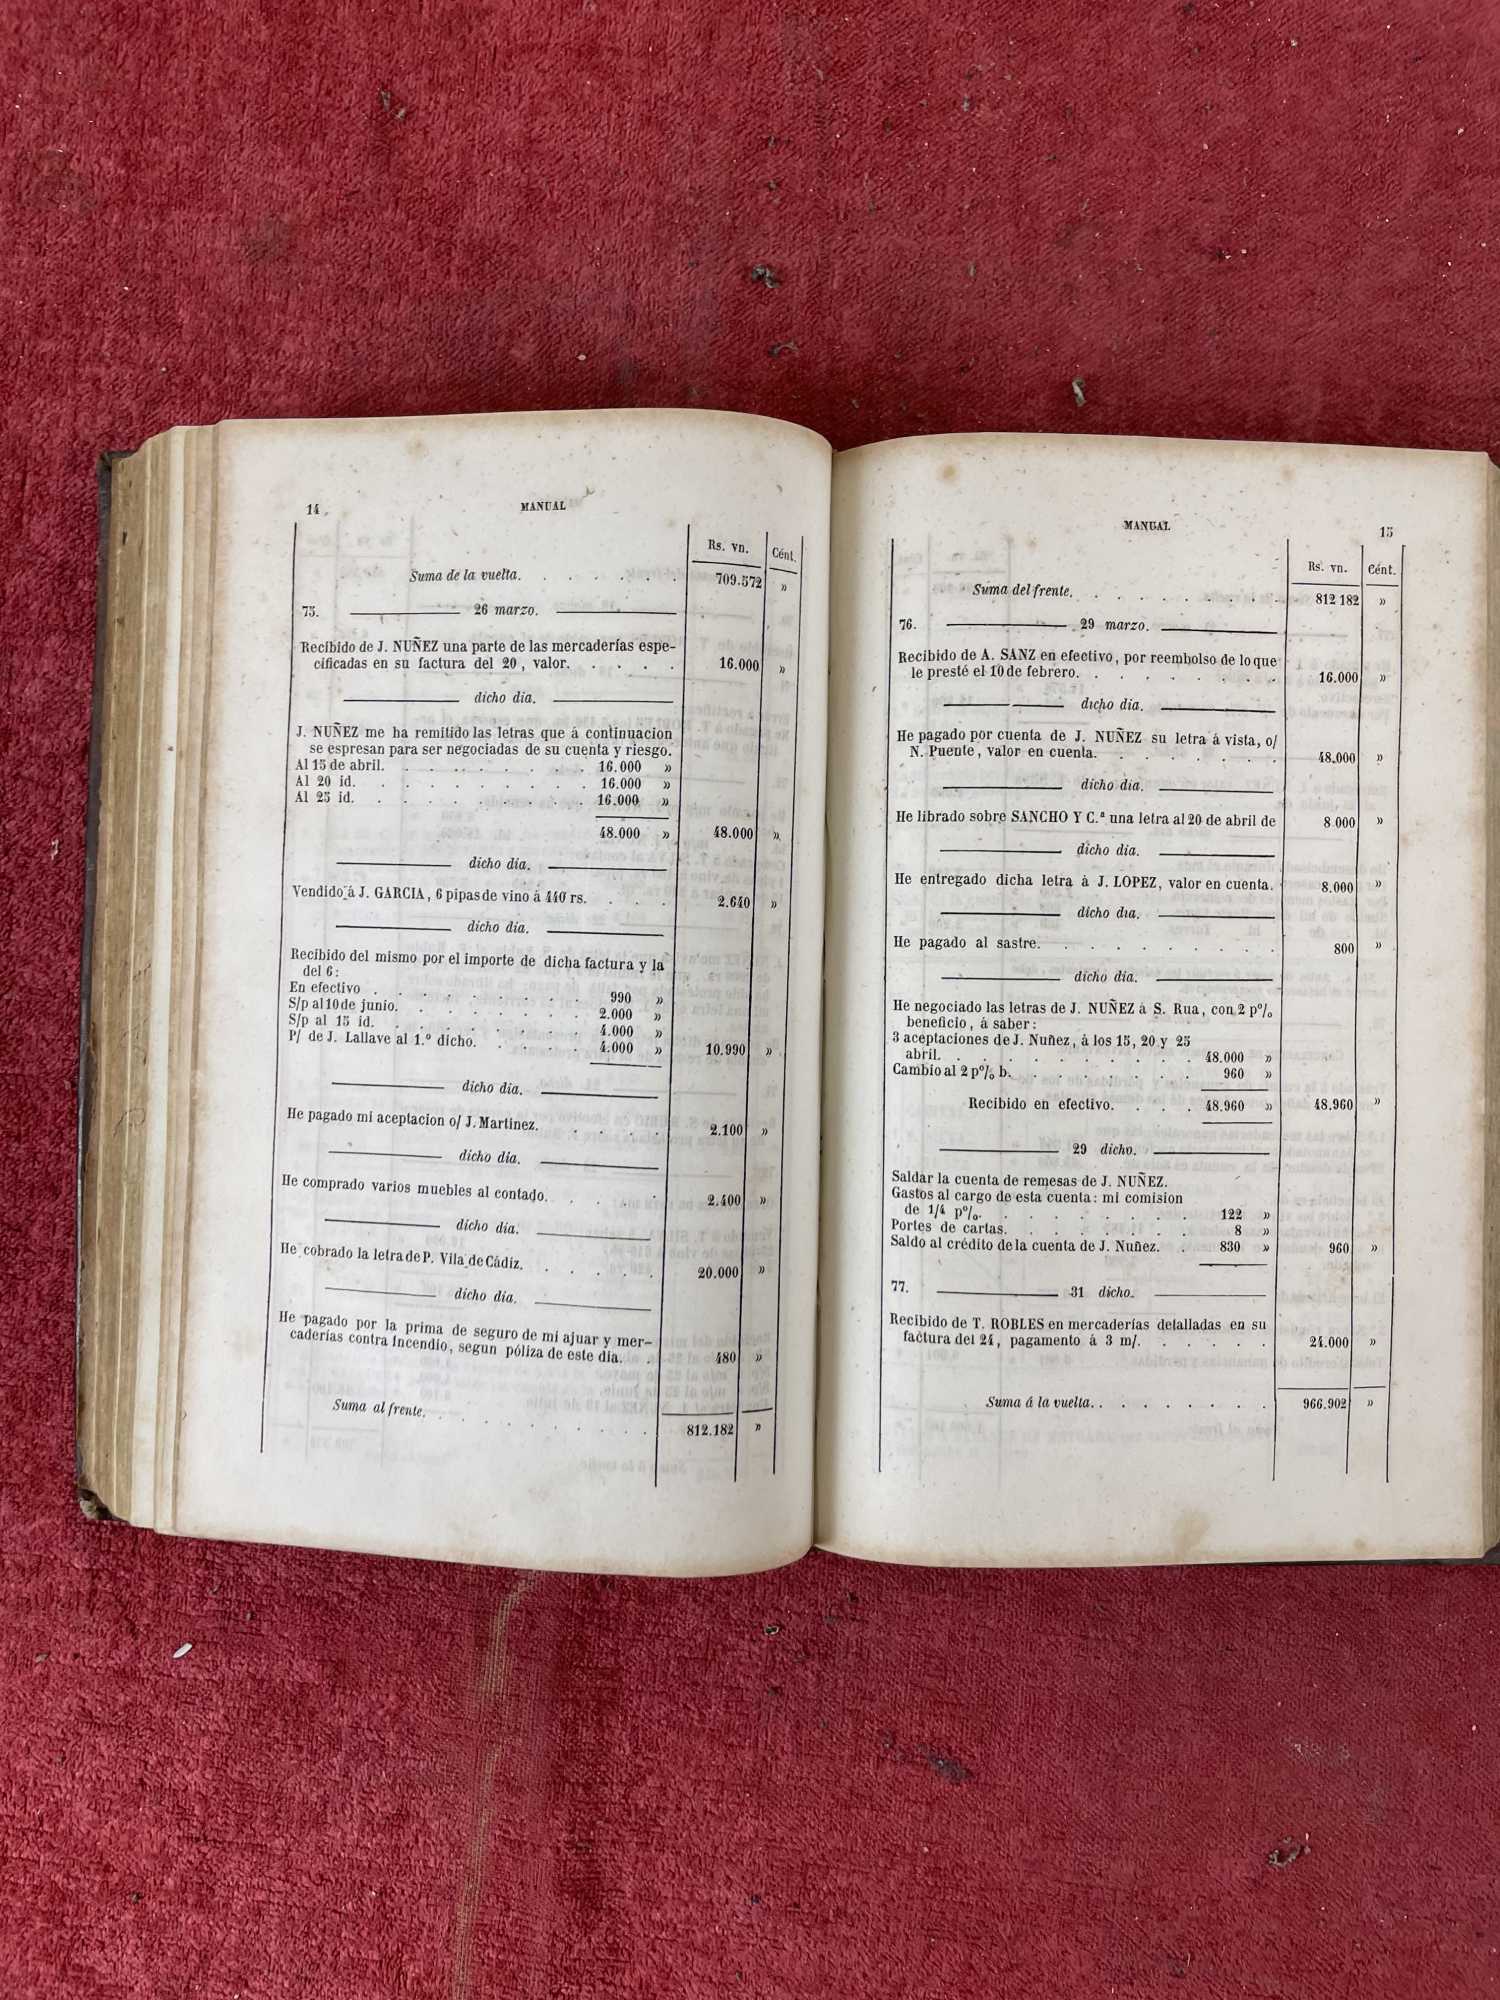 14
MANUAL
Rs. vn. Cént.
Suma de la vuelta. . . . . . 709.572 »
75. 26 marzo.
Recibido de J. NUÑEZ una parte de las mercaderías espe-
cificadas en su factura del 20, valor. . . . . 16.000 »
dicho dia.
J. NUÑEZ me ha remitido las letras que á continuacion
se espresan para ser negociadas de su cuenta y riesgo.
Al 15 de abril. . . . . . . . . 16.000 »
Al 20 id. . . . . . . . . . 16.000 »
Al 25 id. . . . . . . . . . 16.000 »
48.000 » 48.000 »
dicho dia.
Vendido á J. GARCIA, 6 pipas de vino á 440 rs. . . . 2.640 »
dicho dia.
Recibido del mismo por el importe de dicha factura y la
del 6:
En efectivo . . . . . . . . . 990 »
S/p al 10 de junio. . . . . . . . 2.000 »
S/p al 15 id. . . . . . . . . 4.000 »
P/ de J. Lallave al 1.º dicho. . . . . . 4.000 » 10.990 »
dicho dia.
He pagado mi aceptacion o/ J. Martinez. . . . . 2.100 »
dicho dia.
He comprado varios muebles al contado. . . . . 2.400 »
dicho dia.
He cobrado la letra de P. Vila de Cádiz. . . . . . 20.000 »
dicho dia.
He pagado por la prima de seguro de mi ajuar y mer-
caderías contra incendio, segun póliza de este dia. . . 480 »
Suma al frente. . . . . . . . . 812.182 »
MANUAL
15
Rs. vn. Cént.
Suma del frente. . . . . . . . 812 182 »
76. 29 marzo.
Recibido de A. SANZ en efectivo, por reembolso de lo que
le presté el 10 de febrero. . . . . . . . 16.000 »
dicho dia.
He pagado por cuenta de J. NUÑEZ su letra á vista, o/
N. Puente, valor en cuenta. . . . . . . . 48.000 »
dicho dia.
He librado sobre SANCHO Y C.ª una letra al 20 de abril de 8 000 »
dicho dia.
He entregado dicha letra á J. LOPEZ, valor en cuenta. 8.000 »
dicho dia.
He pagado al sastre. . . . . . . . . . 800 »
dicho dia.
He negociado las letras de J. NUÑEZ á S. Rua, con 2 p%
beneficio, á saber:
3 aceptaciones de J. Nuñez, á los 15, 20 y 25
abril. . . . . . . . . . . 48.000 »
Cambio al 2 p% b. . . . . . . . . 960 »
Recibido en efectivo. . . . 48.960 » 48.960 »
29 dicho.
Saldar la cuenta de remesas de J. NUÑEZ.
Gastos al cargo de esta cuenta: mi comision
de 1/4 p%. . . . . . . . . . 122 »
Portes de cartas. . . . . . . . . 8 »
Saldo al crédito de la cuenta de J. Nuñez. . 830 » 960 »
77. 31 dicho.
Recibido de T. ROBLES en mercaderías detalladas en su
factura del 24, pagamento á 3 m/. . . . . . 24.000 »
Suma á la vuelta. . . . . . . . 966.902 »